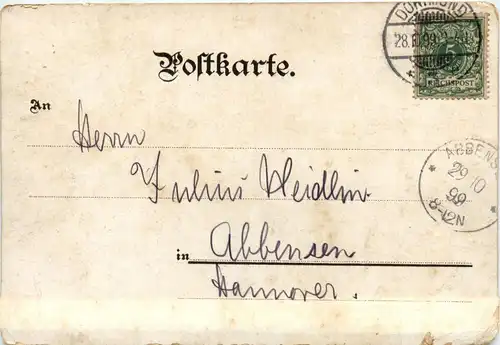 DORTMUND
28.10.99
5
REICHSPOST
Postkarte.
An
Herrn
ABBENS
29 10
99
8-12N
Julius Heidlin
in Abbensen
Hannover.